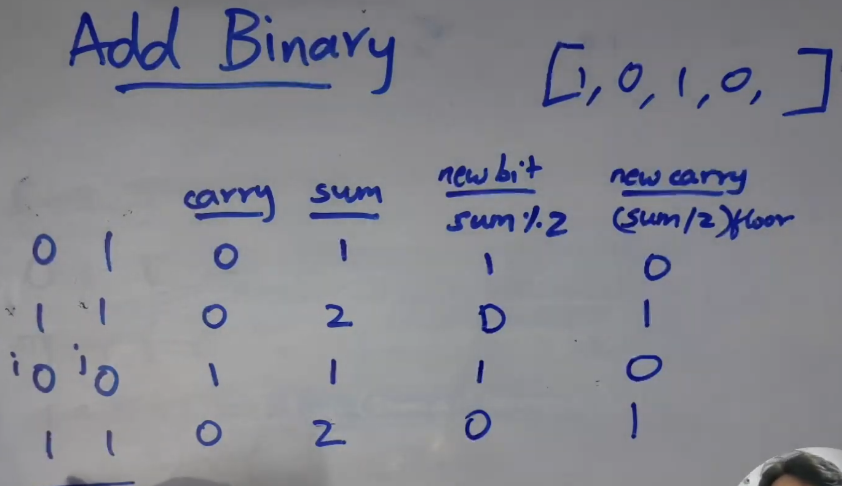 Add Binary
[1, 0, 1, 0, ]
carry sum new bit new carry
sum%2 (sum/2)floor
0 1 0 1 1 0
1 1 0 2 0 1
i0 i0 1 1 1 0
1 1 0 2 0 1